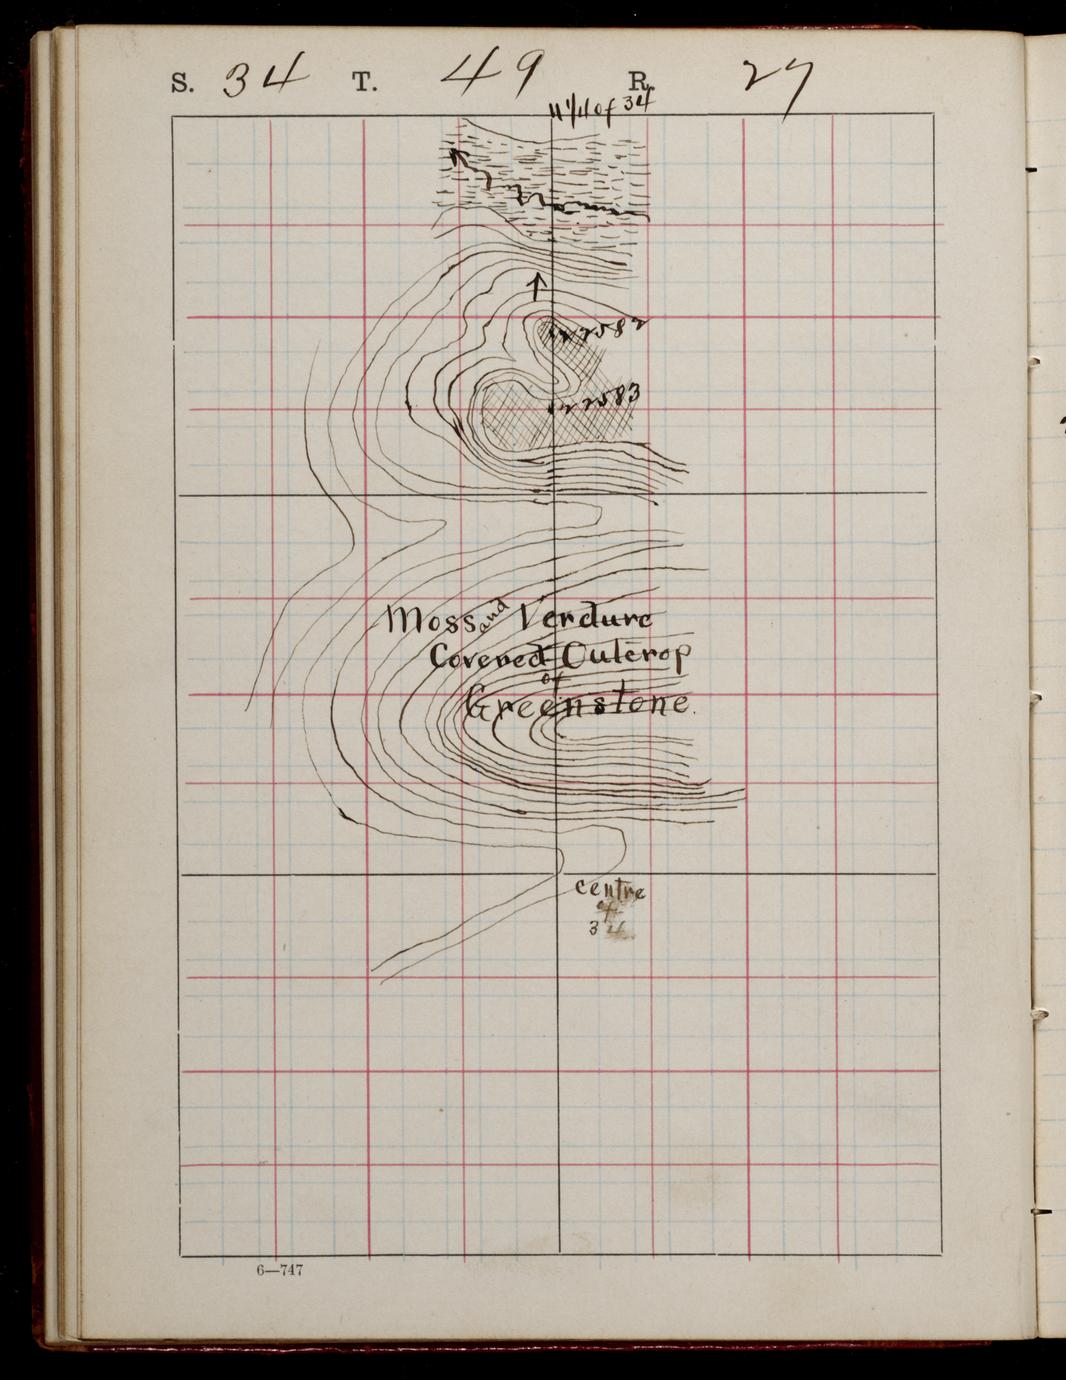 S. 34 T. 49 R. 27
N 1/4 of 34
22582
22583
Moss and Verdure
Covered Outcrop
of
Greenstone.
centre
of
34
6—747